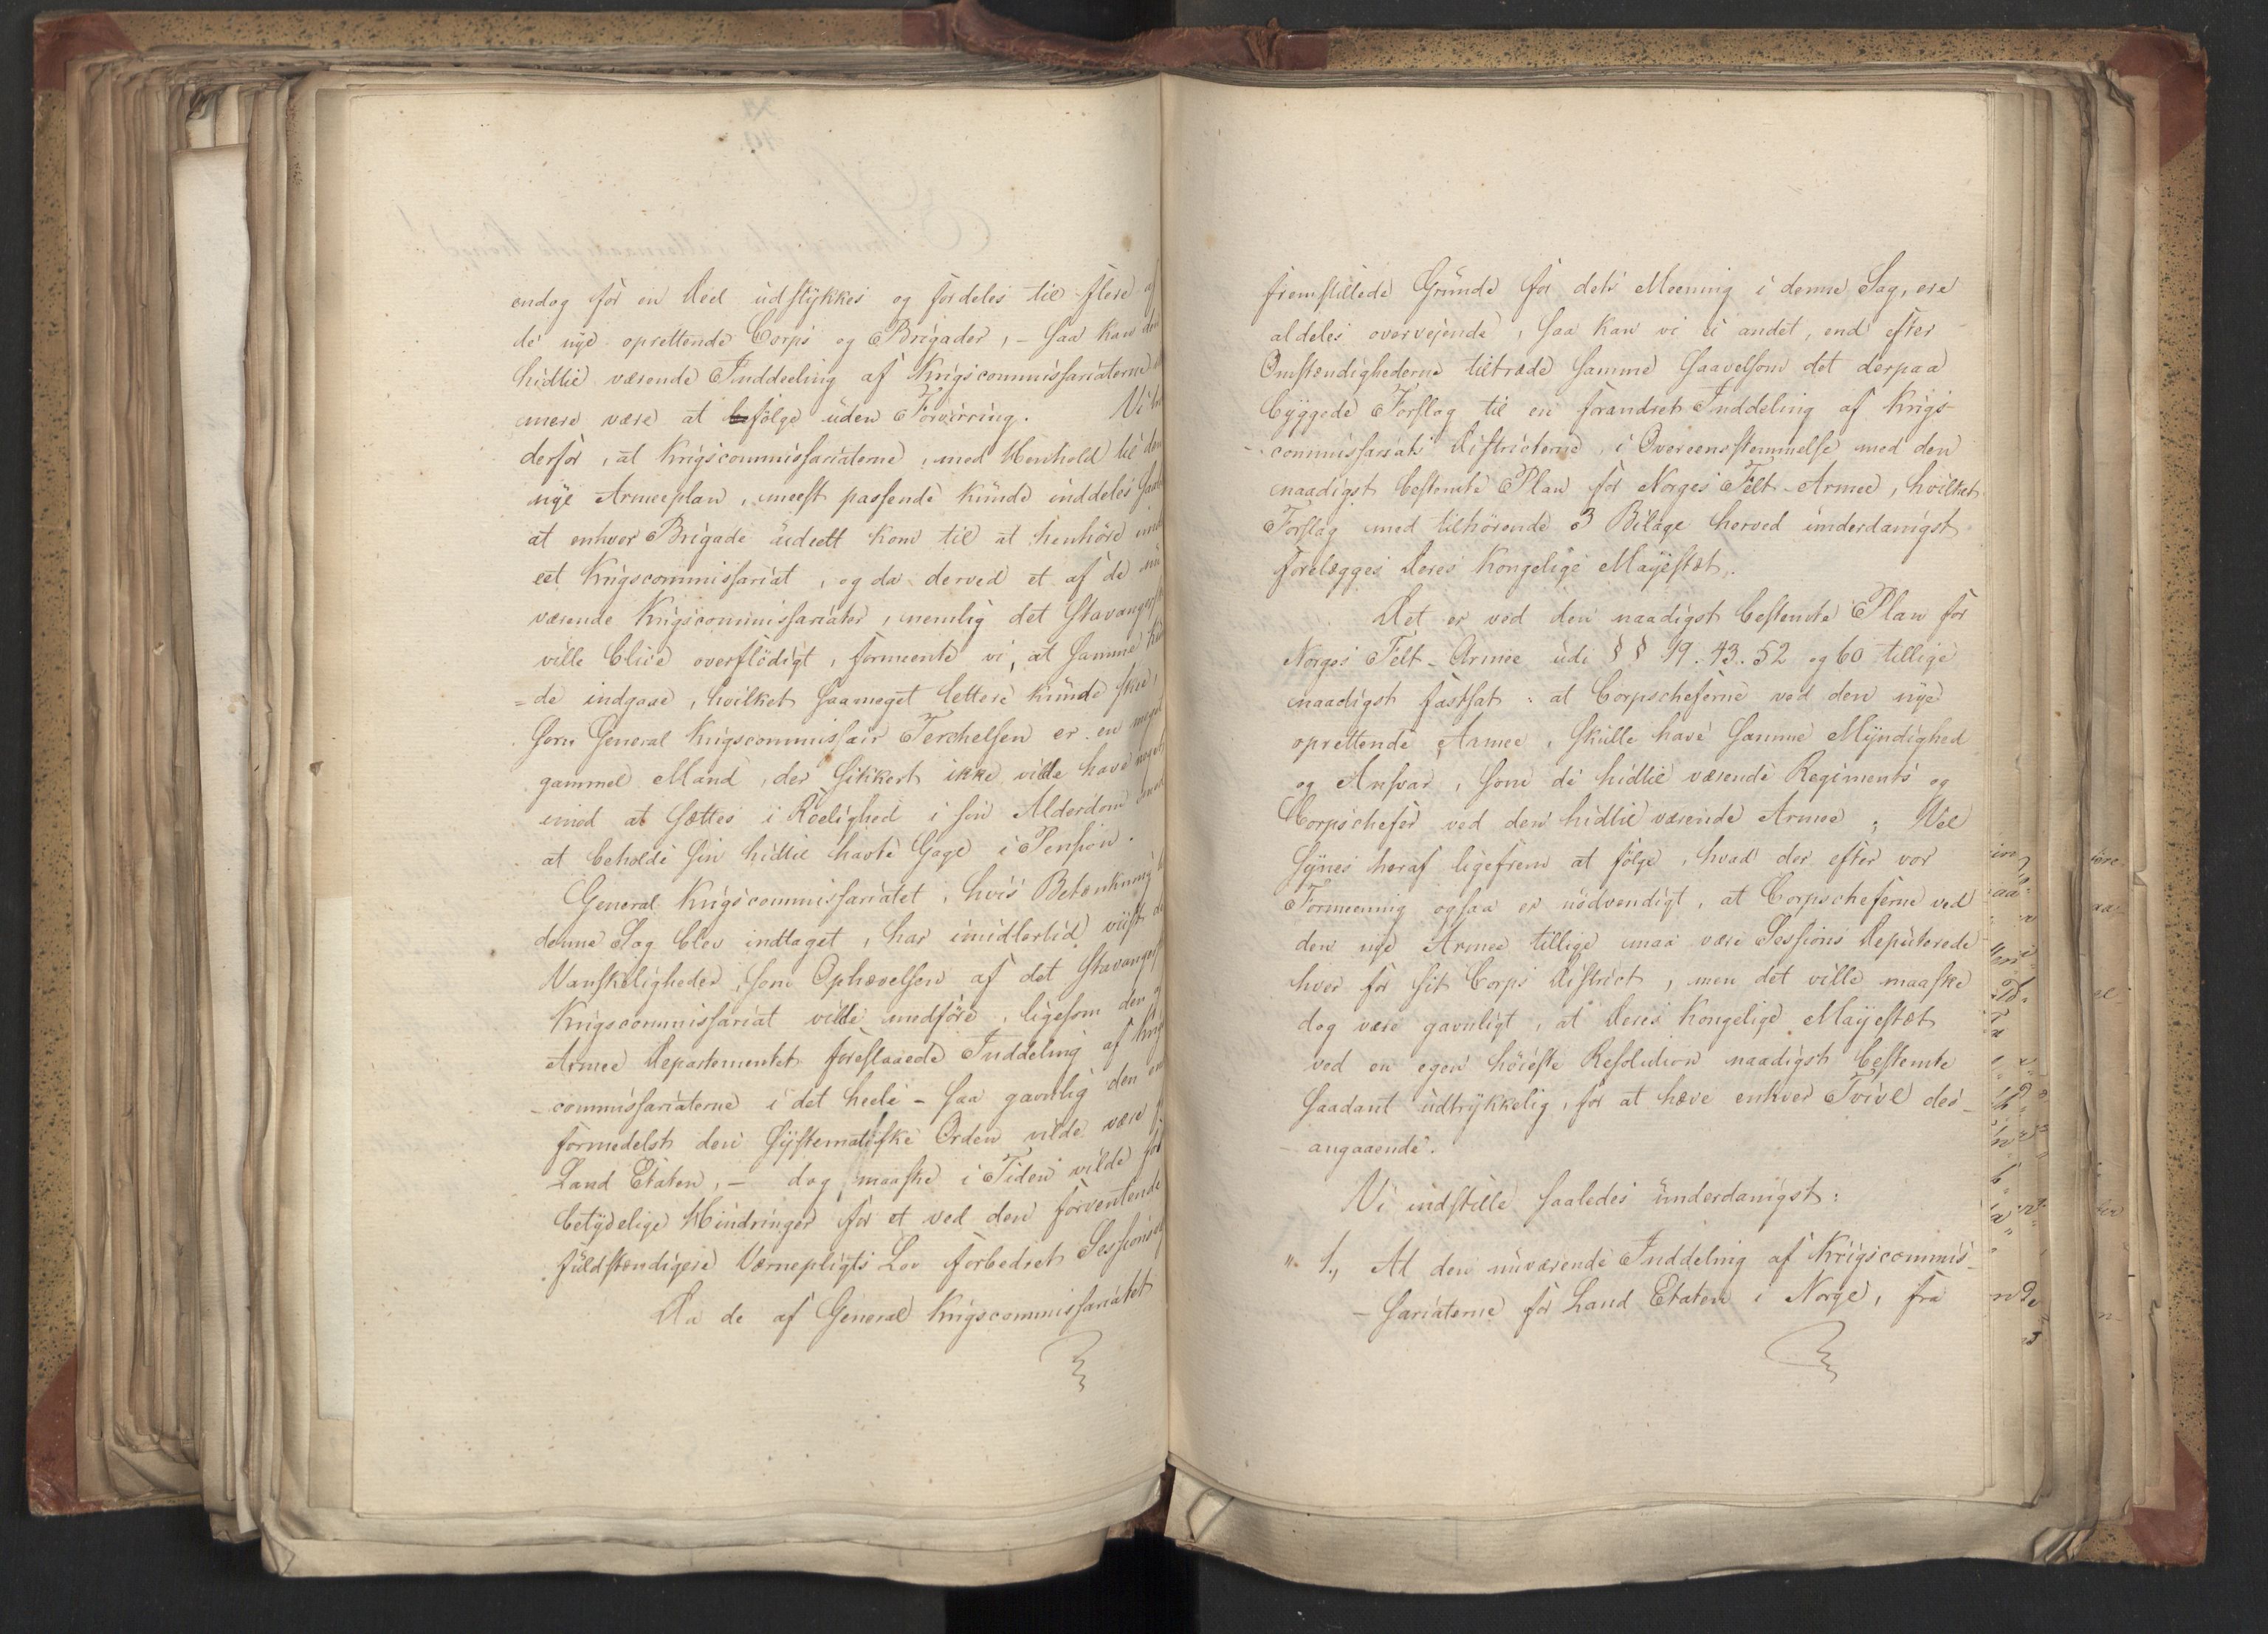 endog for en Deel udstykkes og fordeles til flere af
de nye oprettende Corps og Brigader, - saa kan den
hidtil værende Inddeeling af Krigscommissariaterne
mere være at følge uden Forvirring. Vi
derfor, at Krigscommissariaterne, med Henhold til den
nye Armeeplan, meest passende kunde inddeles saa
at enhver Brigade udeelt kom til at henhöre
eet Krigscommissariat, og da derved et af de nu
værende Krigscommissariater, nemlig det Stavangerske
ville blive overflödigt, formeente vi, at samme kun
=de indgaae, hvilket saameget lettere kunde skee,
som General Krigscommissair Terchelsen er en meget
gammel Mand, der sikkert ikke vilde have noget
imod at sættes i Roelighed i sin Alderdom med
at beholde sin hidtil havte Gage i Pension.
General Krigscommissariatet, hvis Betænkning
denne Sag blev indtaget, har imidlertid viist de
Vanskeligheder, som Ophævelsen af det Stavangerske
Krigscommissariat vilde medföre, ligesom den af
Armee Departementet foreslaaede Inddeling af Krigs
-commissariaterne i det heele - saa gavnlig den end
formedelst den systematiske Orden vilde være for
Land Etaten, - dog maaske i Tiden vilde
betydelige Hindringer for et ved den forventende
fuldstændigere Værnepligts Lov forbedret Sessions
Da de af General Krigscommissariatet
fremstillede Grunde for dets Meening i denne Sag, ere
aldeles overvejende, saa kan vi ei andet, end efter
Omstændighederne tiltræde samme saavelsom det derpaa
byggede Forslag til en forandret Inddeling af Krigs-
-commissariats Districterne, i Overeensstemmelse med den
naadigst bestemte Plan for Norges Felt-Armee, hvilket
Forslag med tilhörende 3 Bilage herved underdanigst
forelægges Deres Kongelige Mayestæt.
Det er ved den naadigst bestemte Plan for
Norges Felt-Armee udi §§ 19. 43. 52 og 60 tillige
naadigst fastsat: at Corpscheferne ved den nye
oprettende Armee, skulle have samme Myndighed
og Ansvar, som de hidtil værende Regiments og
Corpschefer ved den hidtil værende Armee; Vel
synes heraf ligefrem at fölge, hvad der efter vor
Formeening ogsaa er nödvendigt, at Corpscheferne ved
den nye Armee tillige maa være Sessions Deputerede
hver for sit Corps District, men det ville maaske
dog være gavnligt, at Deres Kongelige Mayestæt
ved en egen höieste Resolution naadigst bestemte
saadant udtrykkelig, for at hæve enhver Tvivl des-
-angaaende.
Vi indstille saaledes underdanigst:
". 1., At den nuværende Inddeling af Krigscommis-
-sariaterne for Land Etaten i Norge, fra